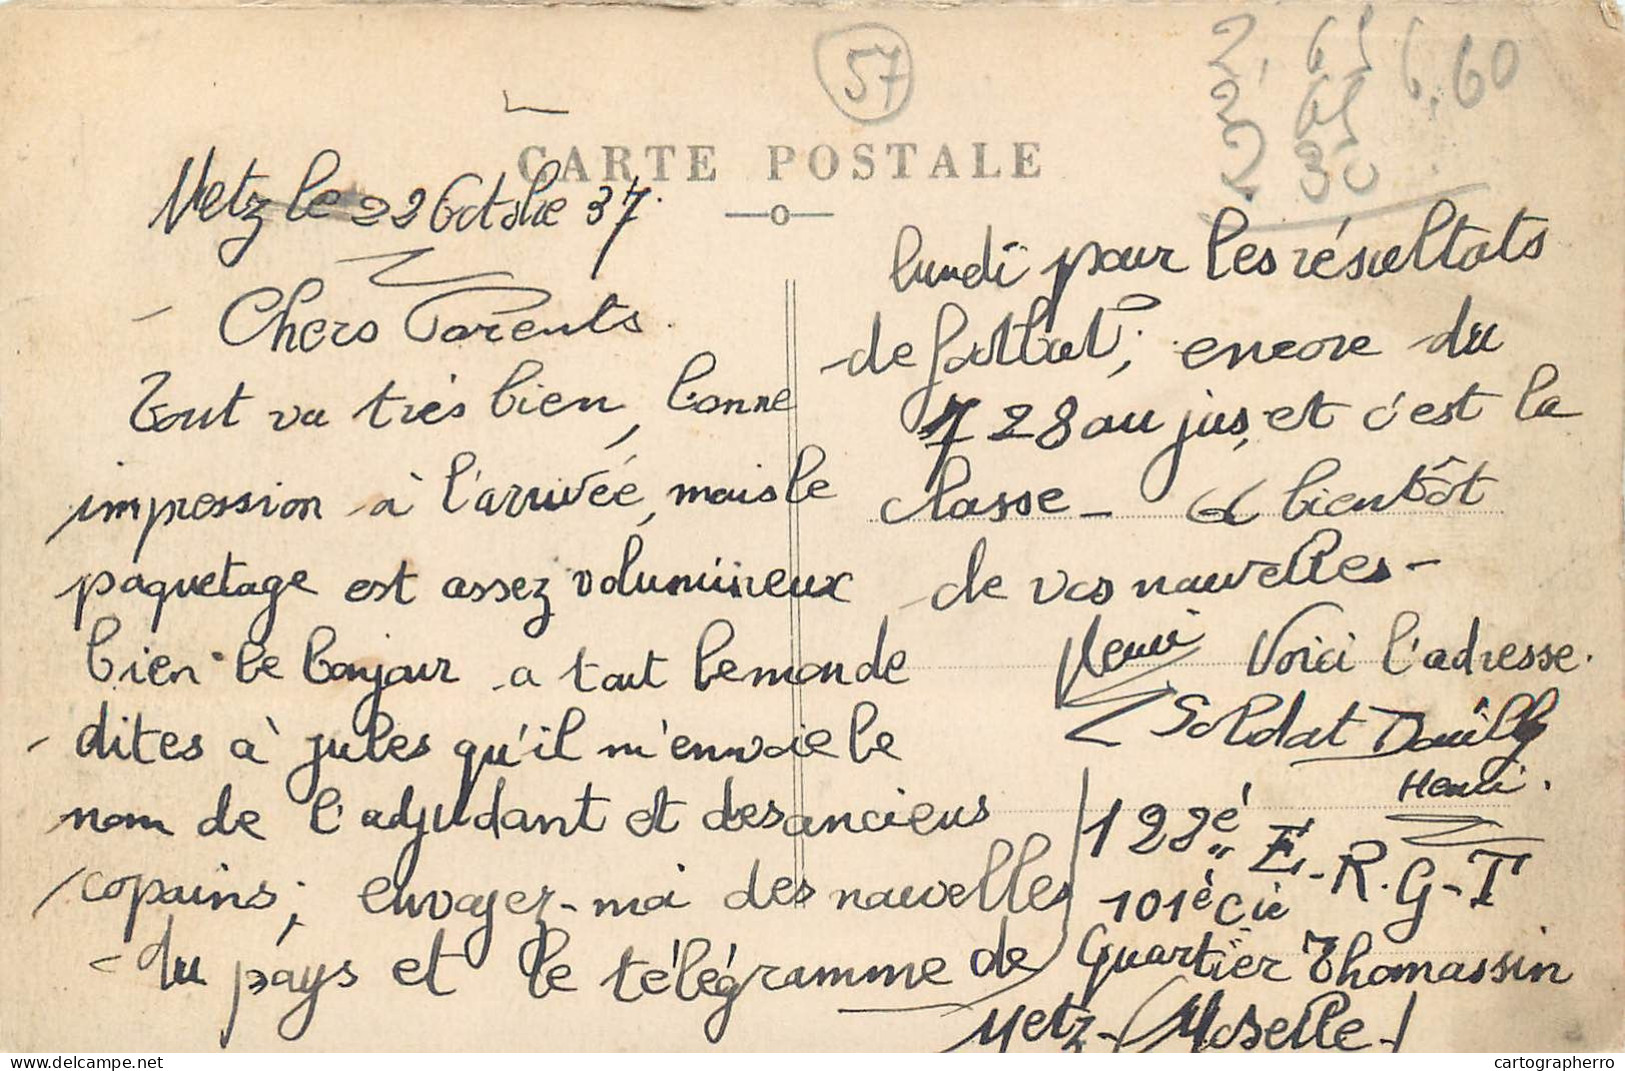 57
2,65
2,65
2.30
6,60
CARTE POSTALE
Metz le 22 Octobre 37.
Chers Parents.
Tout va très bien, bonne
impression à l'arrivée, mais le
paquetage est assez volumineux
bien le bonjour a tout le monde
dites à jules qu'il m'envoie le
nom de l'adjudant et des anciens
copains; envoyez-moi des nouvelles
du pays et le télégramme de
lundi pour les résultats
de football; encore du
728 au jus, et c'est la
classe - A bientôt
de vos nouvelles -
Henri
Voici l'adresse.
Soldat Douilly
Henri.
122é E.R.G-T
101è Cie
Quartier Thomassin
Metz - (Moselle)
delcampe.net
cartographerro